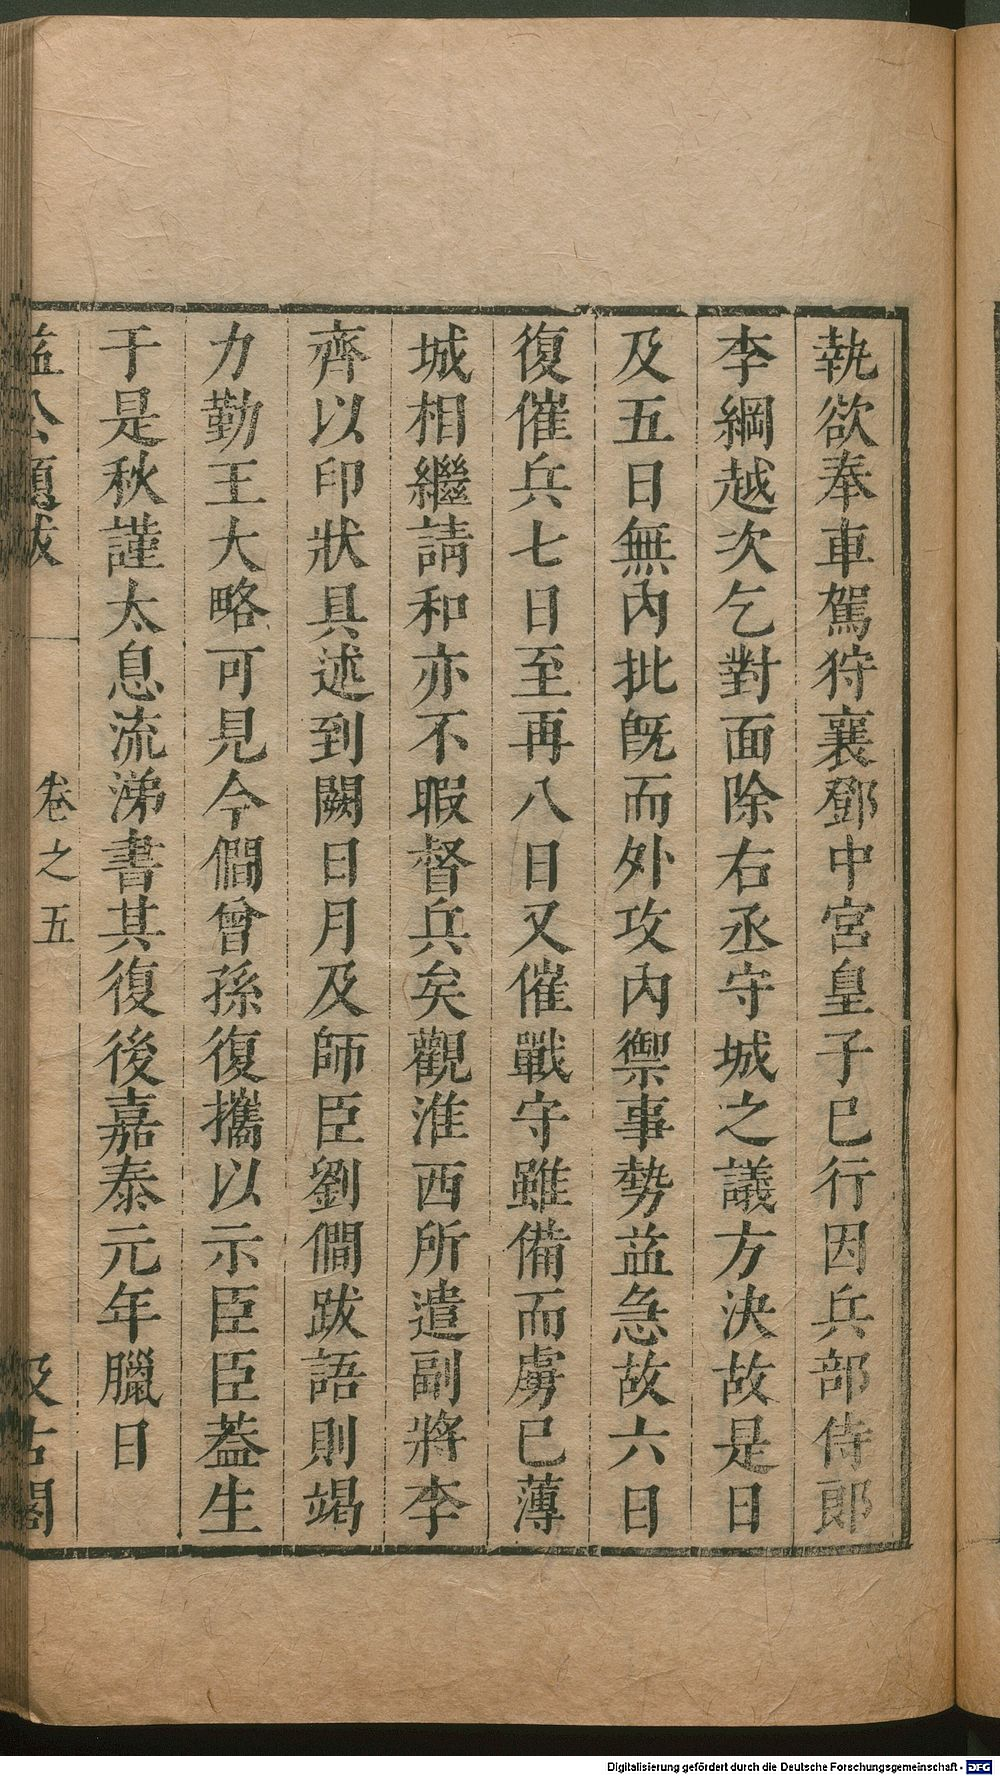 執欲奉車駕狩襄鄧中宮皇子已行因兵部侍郎
李綱越次乞對面除右丞守城之議方決故是日
及五日無內批旣而外攻內禦事勢益急故六日
復催兵七日至再八日又催戰守雖備而虜已薄
城相繼請和亦不暇督兵矣觀淮西所遣副將李
齊以印狀具述到闕日月及師臣劉僩跋語則竭
力勤王大略可見今僩曾孫復攜以示臣臣蓋生
于是秋謹太息流涕書其復後嘉泰元年臘日
益公題跋 卷之五 汲古閣
Digitalisierung gefördert durch die Deutsche Forschungsgemeinschaft - DFG